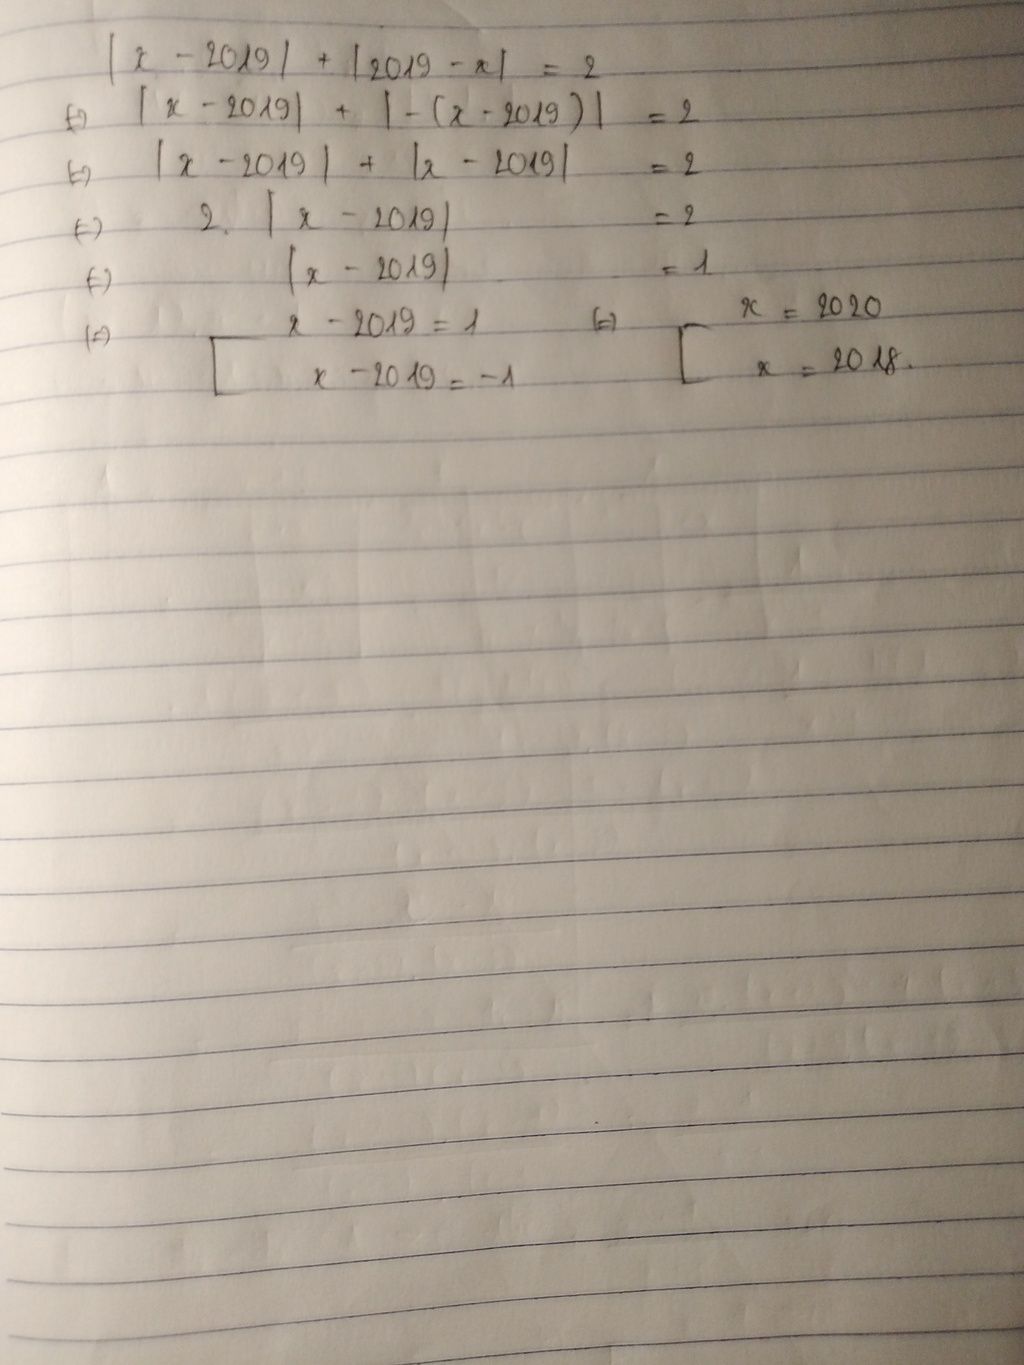 |x - 2019| + |2019 - x| = 2
(=) |x - 2019| + |-(x - 2019)| = 2
(=) |x - 2019| + |x - 2019| = 2
(=) 2. |x - 2019| = 2
(=) |x - 2019| = 1
(=) [ x - 2019 = 1 (=) [ x = 2020
x - 2019 = -1 x = 2018.